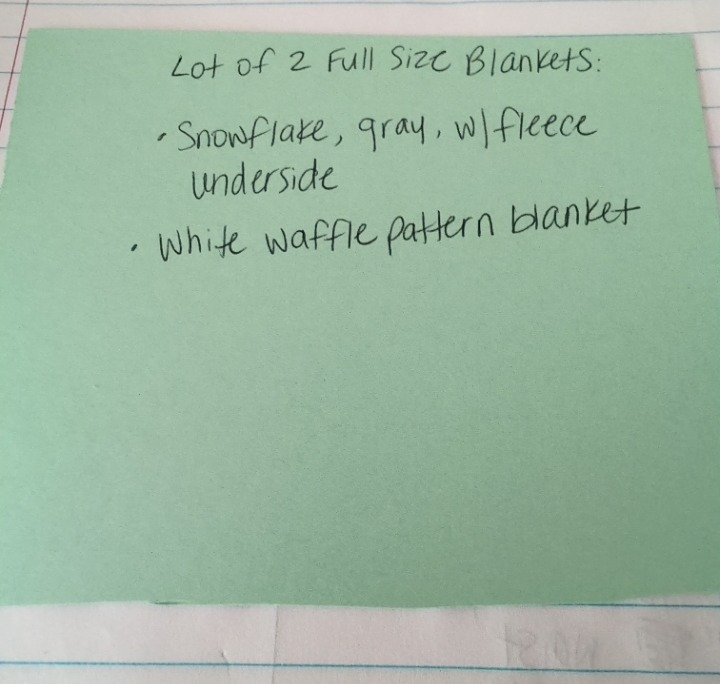 Lot of 2 Full Size Blankets:
• Snowflake, gray, w/fleece
underside
• White waffle pattern blanket